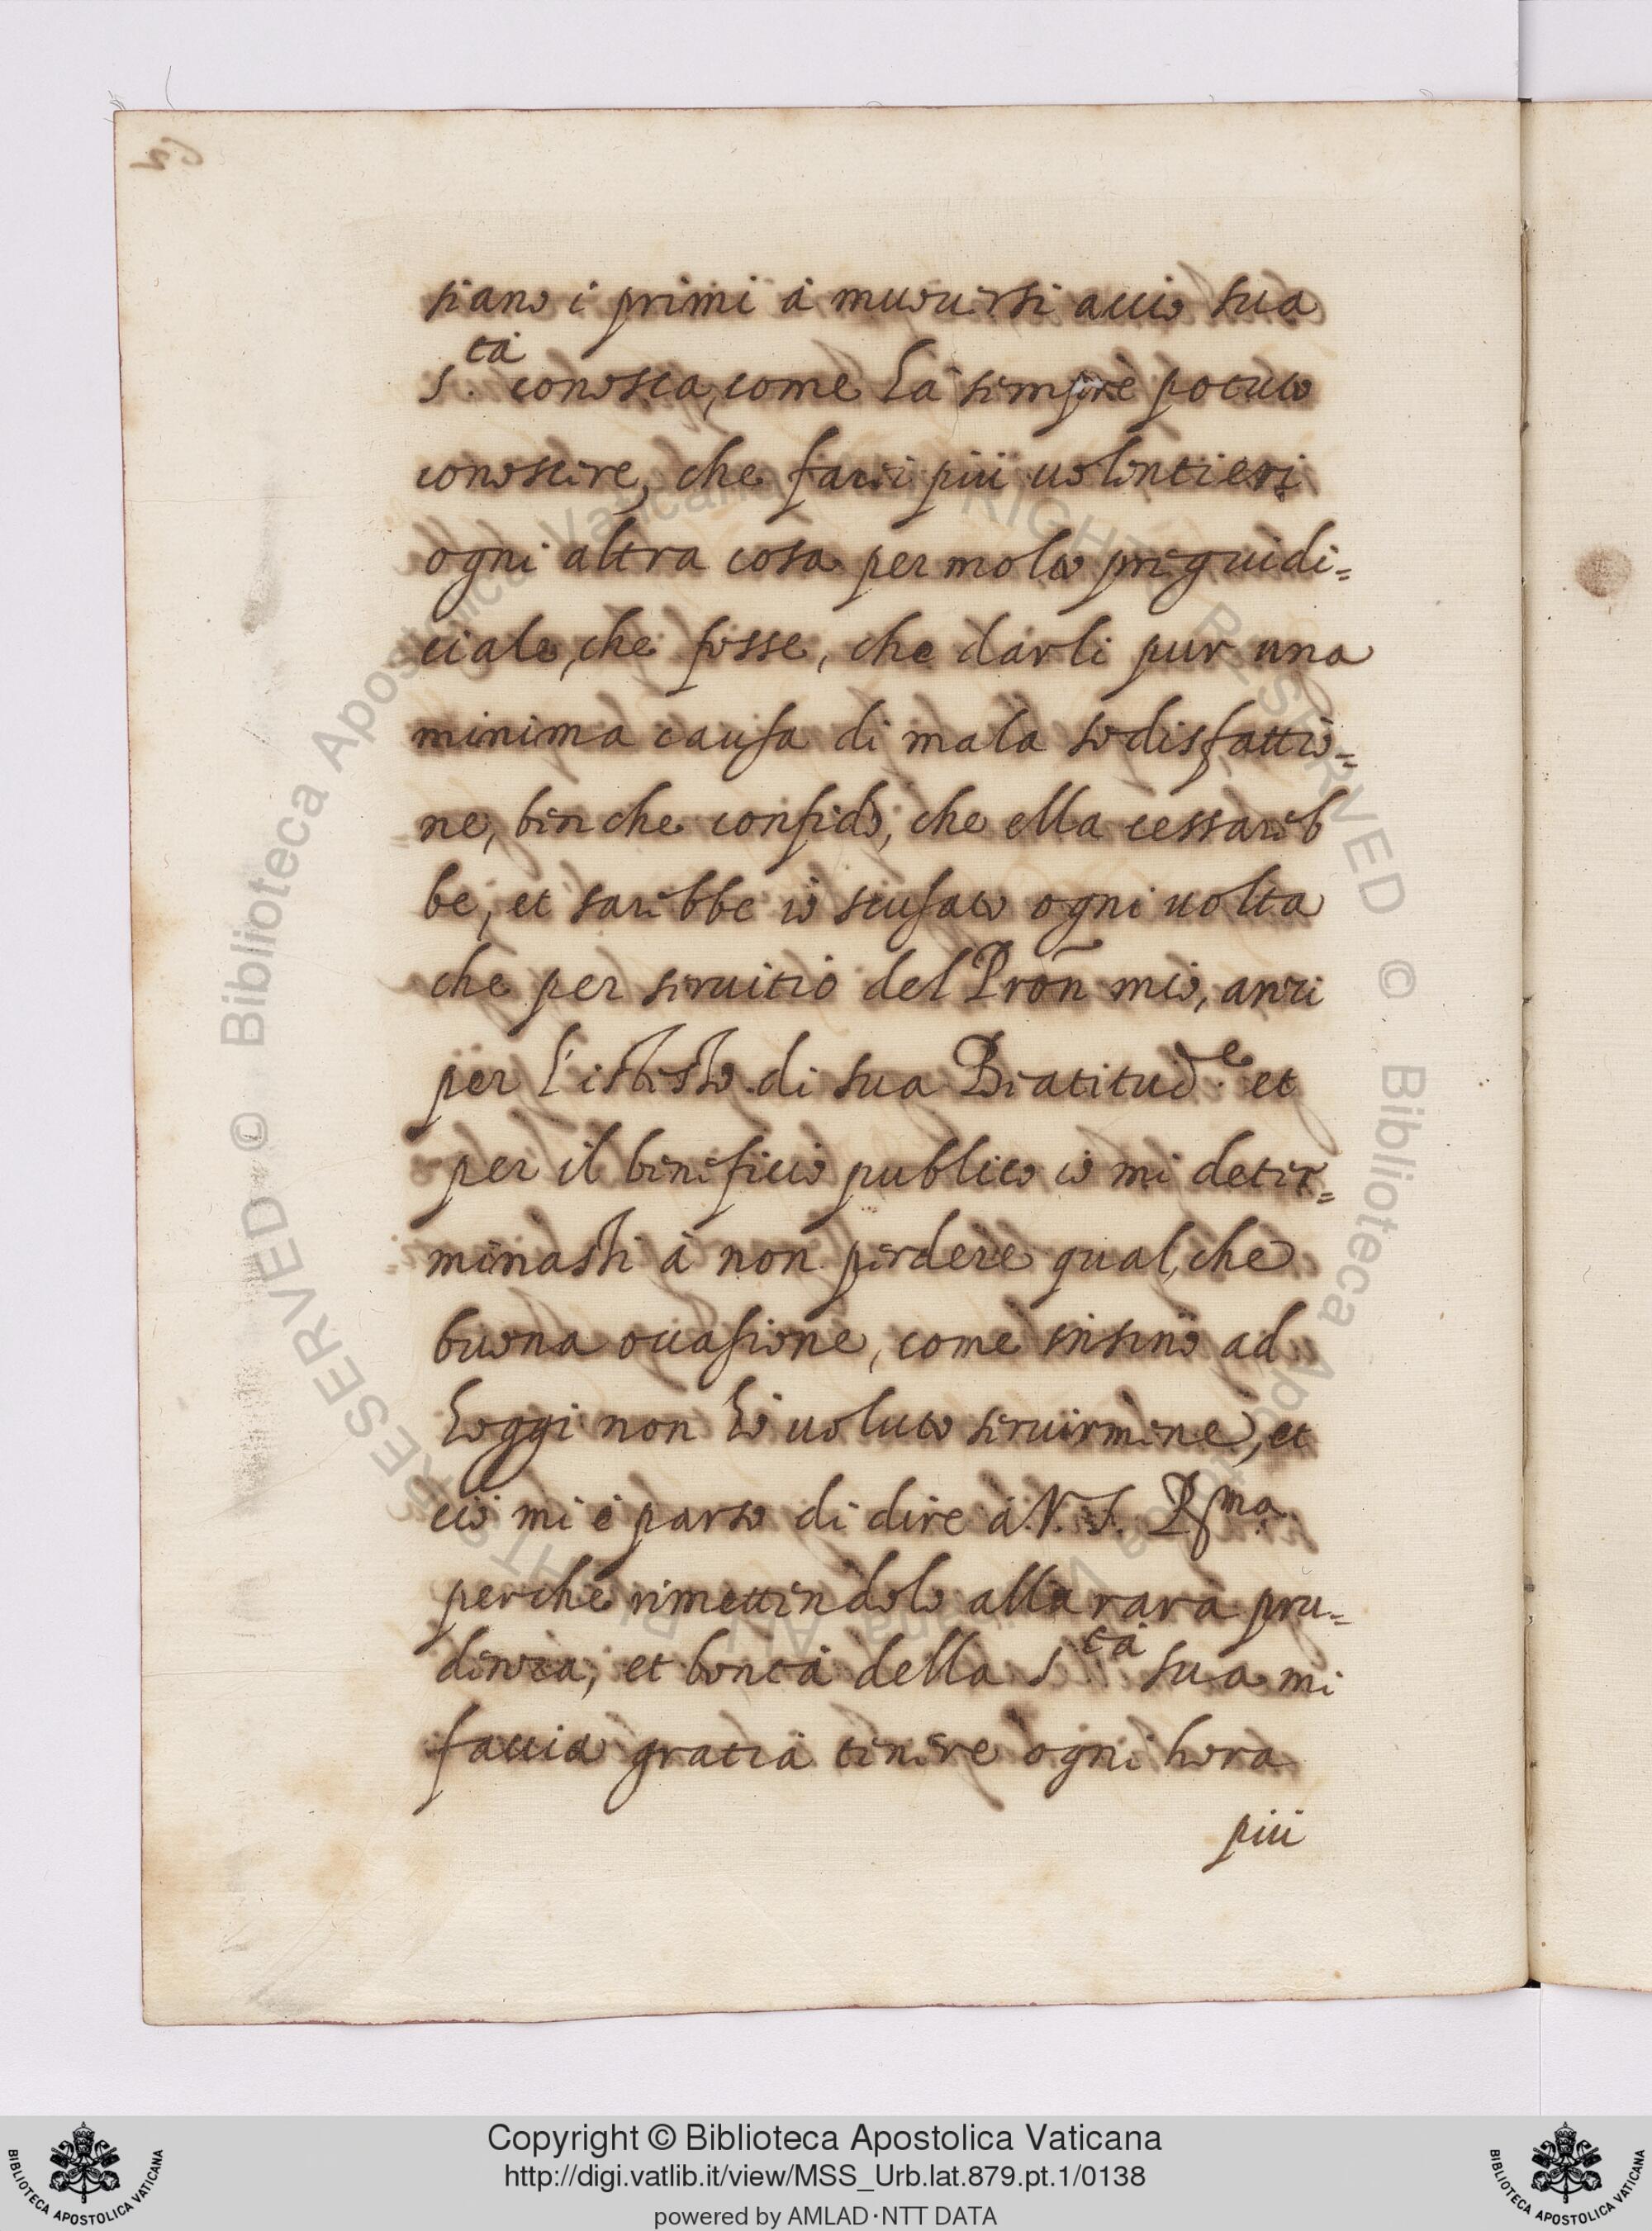 siano i primi à muouersi acciò sua
S.tà conosca, come hà sempre potuto
conoscere, che farei più uolentieri
ogni altra cosa per molto preguidi=
ciale, che fosse, che darli pur una
minima causa di mala sodisfattio=
ne, benche confido, che ella cessareb
be, et sarebbe iò scusato ogni uolta
che per seruitio del Pron̄ mio, anzi
per l'istesso di sua Beatitud.e et
per il beneficio publico iò mi deter=
minasti à non perdere qual, che
buona occasione, come insino ad
hoggi non hò uoluto seruirmene, et
ciò mi è parso di dire à V. S. R.ma
perche rimettendolo alla rara pru=
denza, et bontà della S.tà sua mi
faccia gratia tenere ogni hora
più
Copyright © Biblioteca Apostolica Vaticana
http://digi.vatlib.it/view/MSS_Urb.lat.879.pt.1/0138
powered by AMLAD·NTT DATA
BIBLIOTECA APOSTOLICA VATICANA
BIBLIOTECA APOSTOLICA VATICANA